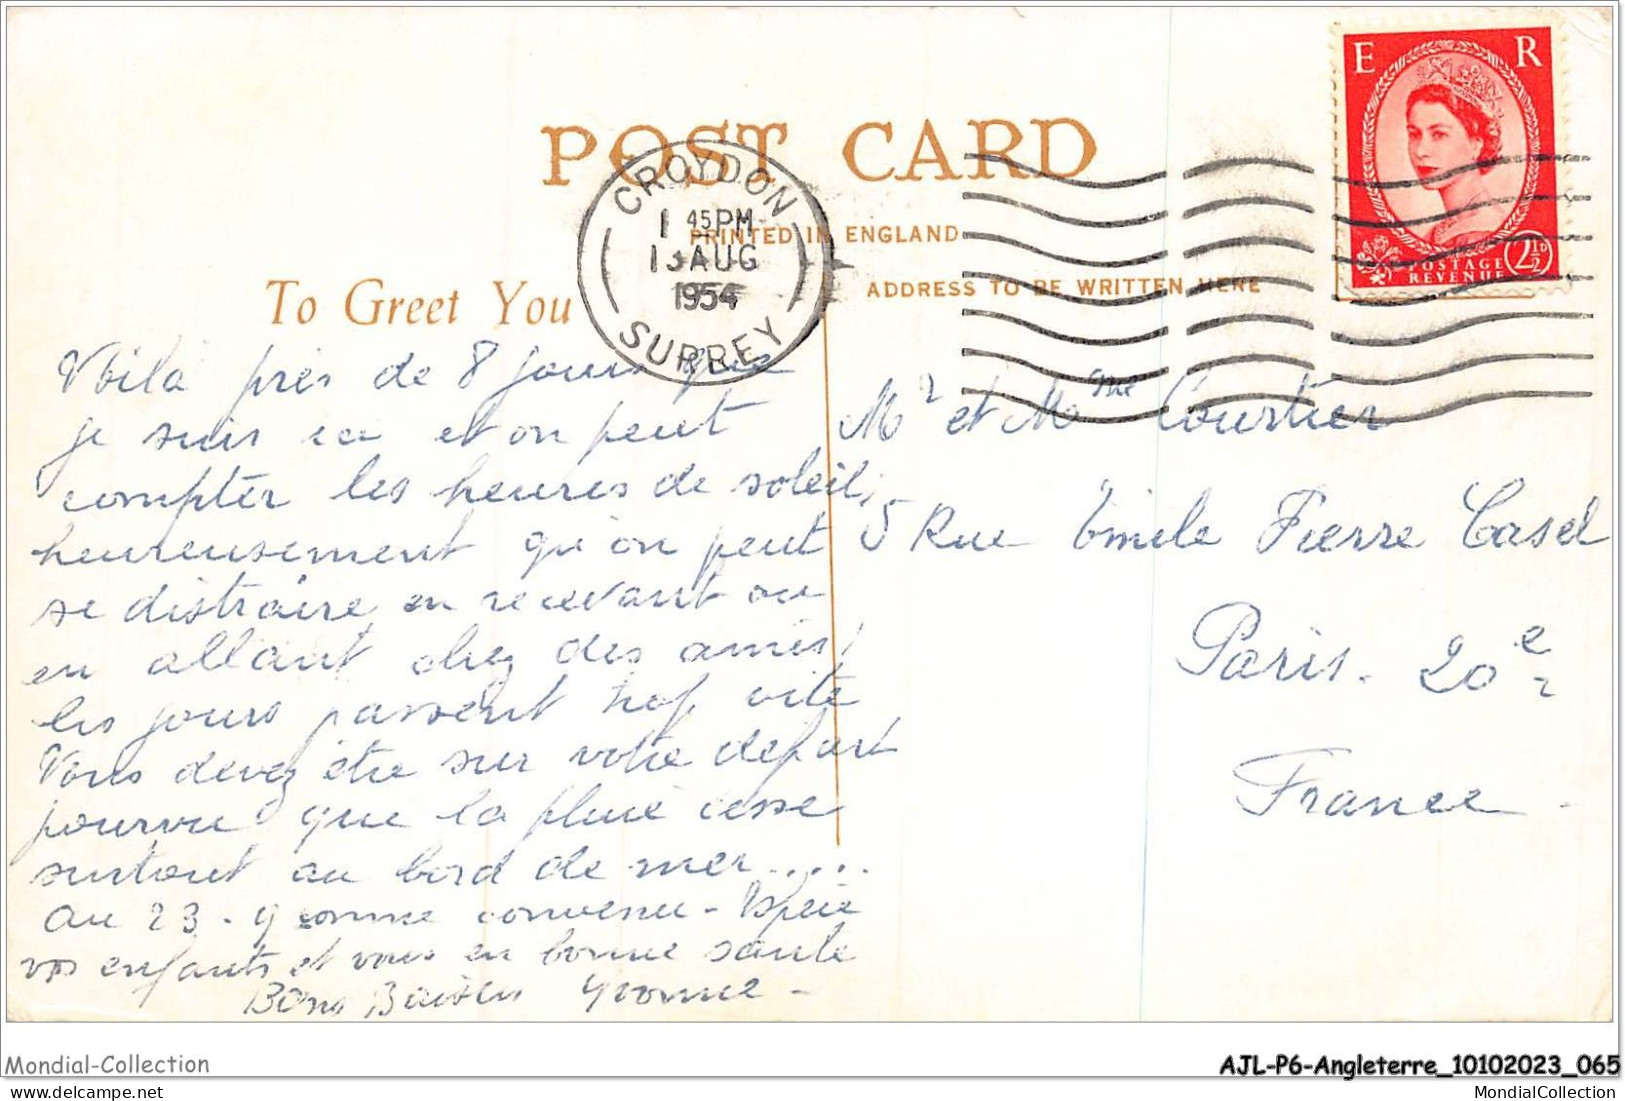 E R
POSTAGE
REVENUE
2½D
POST CARD
CROYDON
1 45 PM
AUG
1954
SURREY
PRINTED IN ENGLAND
ADDRESS TO BE WRITTEN HERE
To Greet You
Voilà près de 8 jours que
je suis ici et on peut
compter les heures de soleil,
heureusement qu'on peut
se distraire en recevant ou
en allant chez des amis,
les jours passent trop vite
Vous devez être sur votre départ
pourvu que la pluie cesse
surtout au bord de mer.....
Au 23 - comme convenu - Espère
vos enfants et vous en bonne santé
Bons Baisers Yvonne -
Mr et Mme Courtier
5 Rue Emile Pierre Casel
Paris. 20e
France -
Mondial-Collection
AJL-P6-Angleterre_10102023_065
MondialCollection